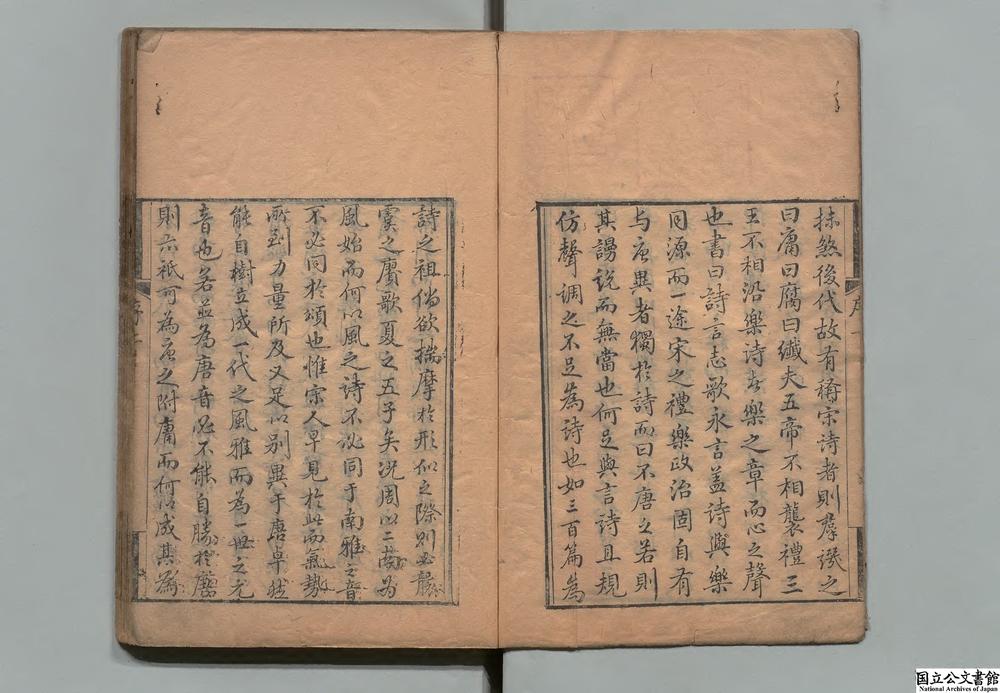 抹煞後代故有稱宋詩者則羣譏之
曰腐曰腐曰纖夫五帝不相襲禮三
王不相沿樂詩者樂之章而心之聲
也書曰詩言志歌永言蓋詩與樂
同源而一途宋之禮樂政治固自有
与唐異者獨於詩而曰不唐之若則
其謾説而無當也何足與言詩且規
仿聲調之不足為詩也如三百篇為
詩之祖倘欲揣摩於形似之際則必勝
虞之賡歌夏之五子矣況周以二南為
風始而何以風之诗不必同于南雅之音
不必同於頌也惟宋人早見於此而氣勢
所到力量所及又足以別異于唐卓然
能自樹立成一代之風雅而為一世之元
音也若並為唐音必不能自勝於唐
則亦祇可為唐之附庸而何以成其為
序
序二
国立公文書館
National Archives of Japan